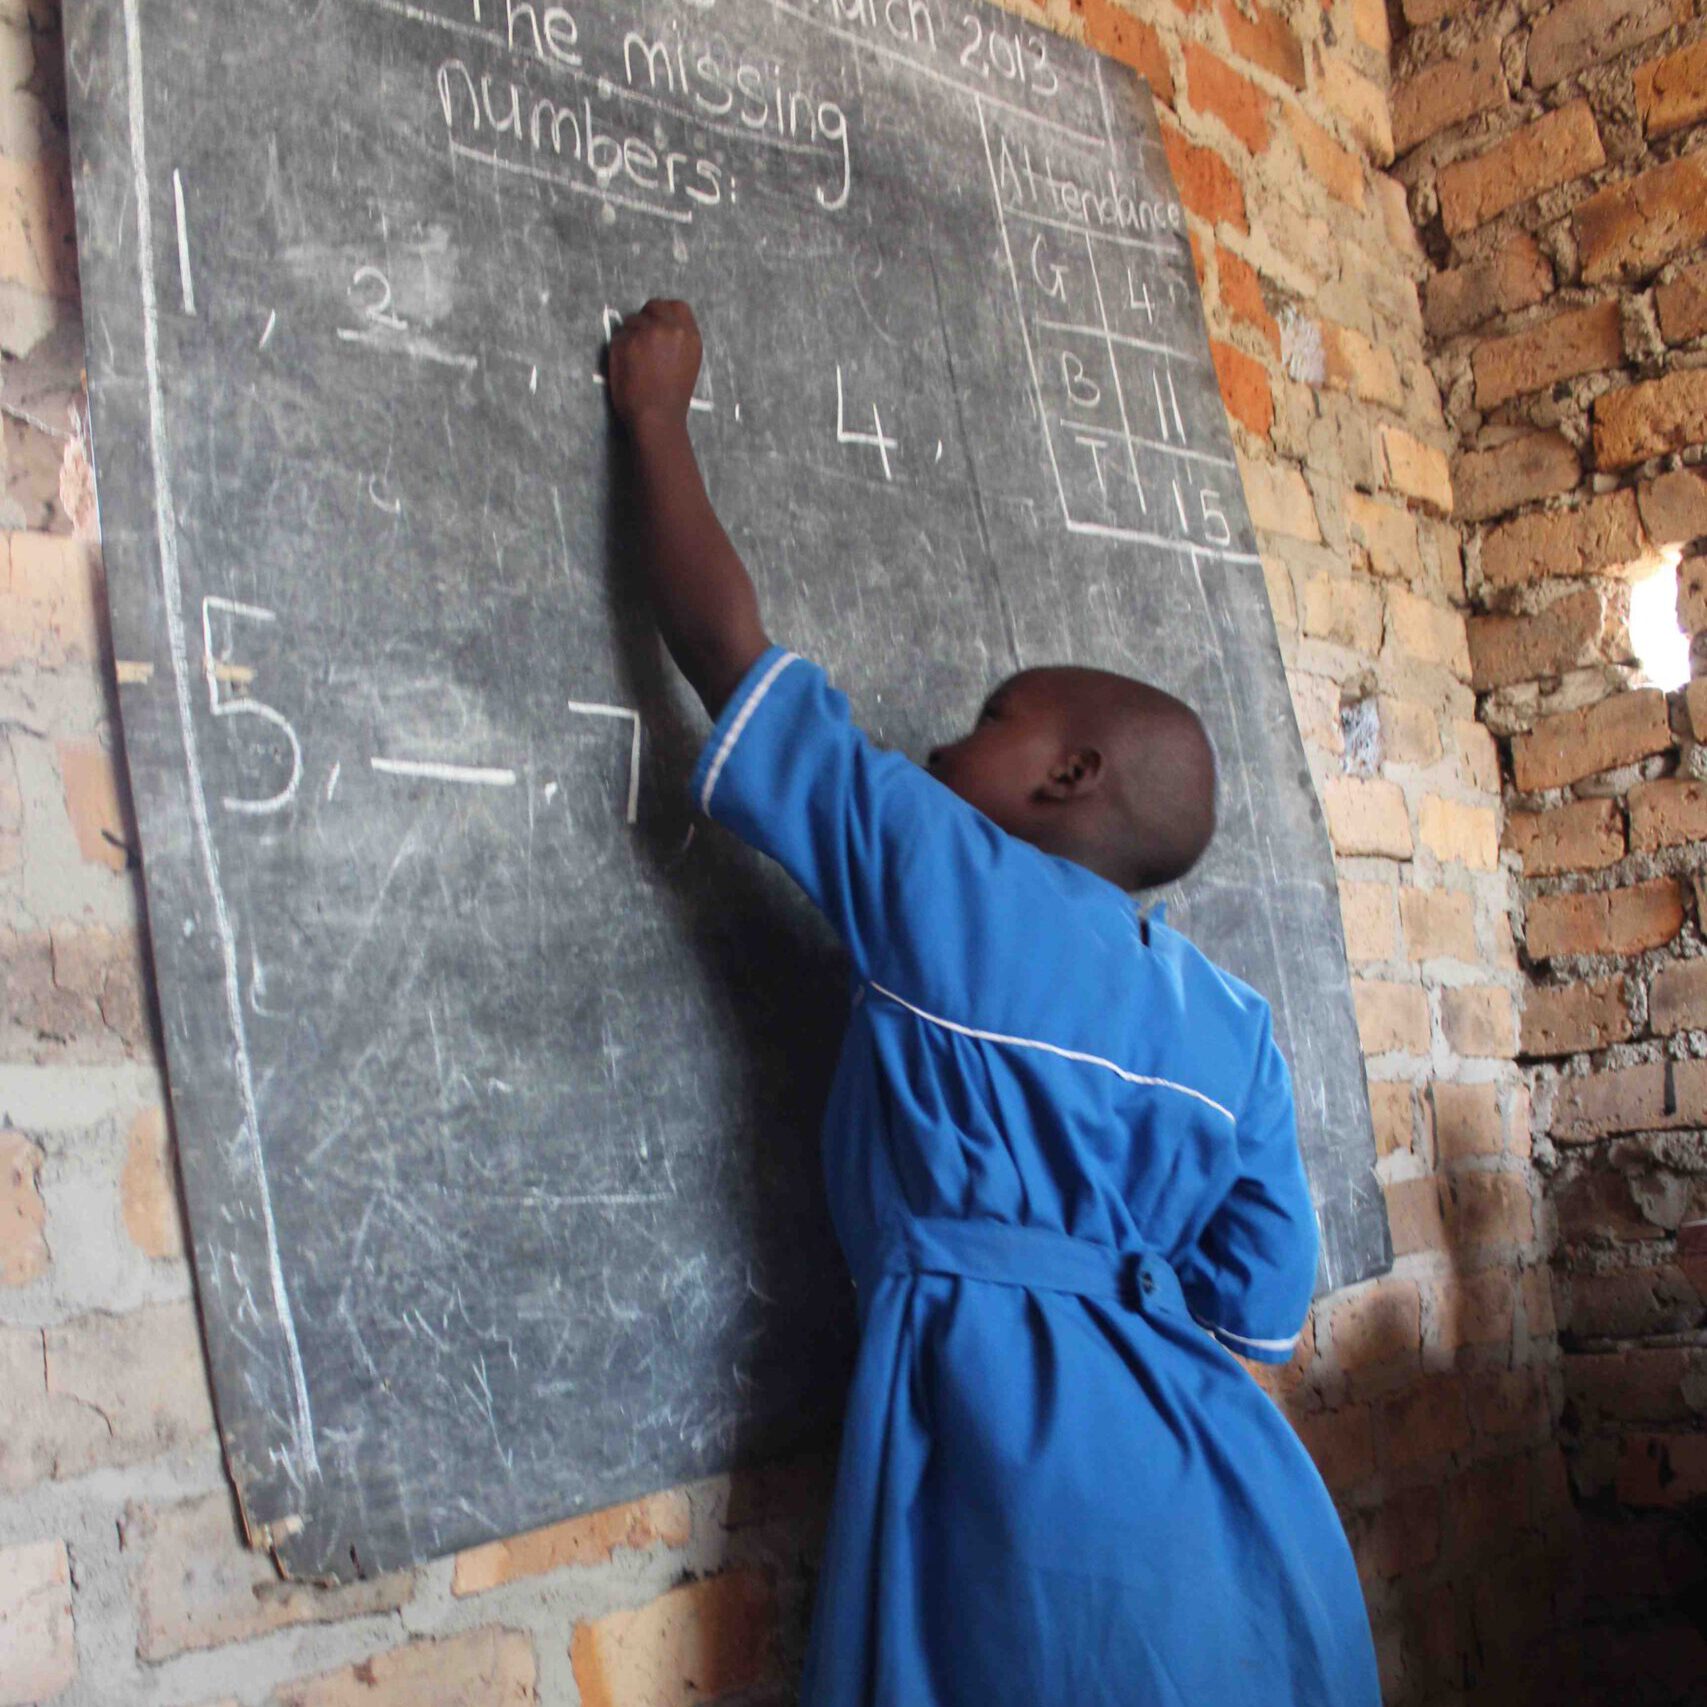 March 2013
The missing
numbers:
Attendance
G 4
B 11
T 15
1, 2, , 4,
5, _, 7,